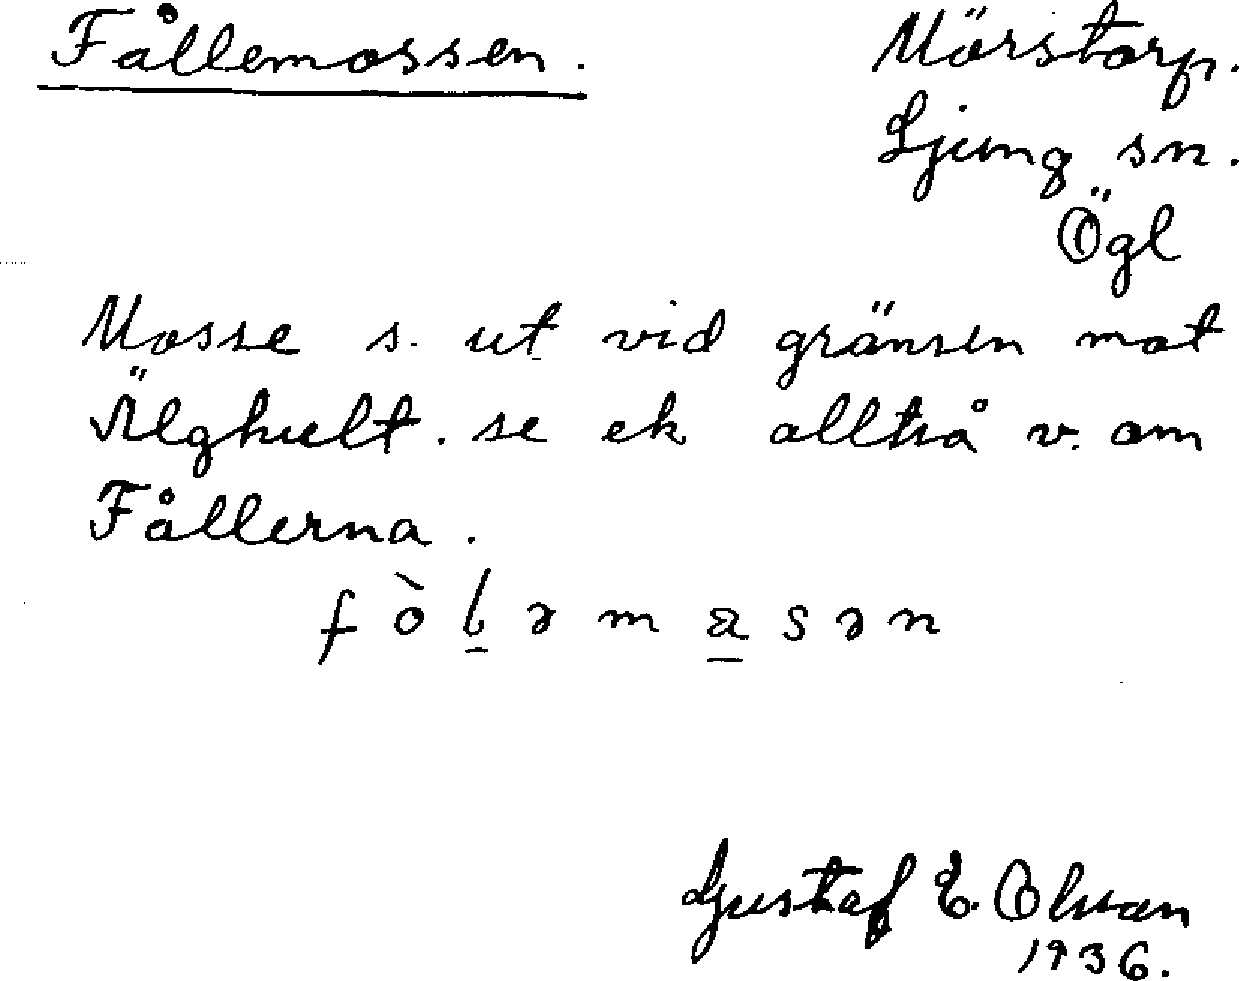 Fållemossen.
Mörstorp.
Ljung sn.
Ögl
Mosse s. ut vid gränsen mot
Älghult. se ek alltså v. om
Fållerna.
fòl̠əmas̠ən
Gustaf E. Olsson
1936.